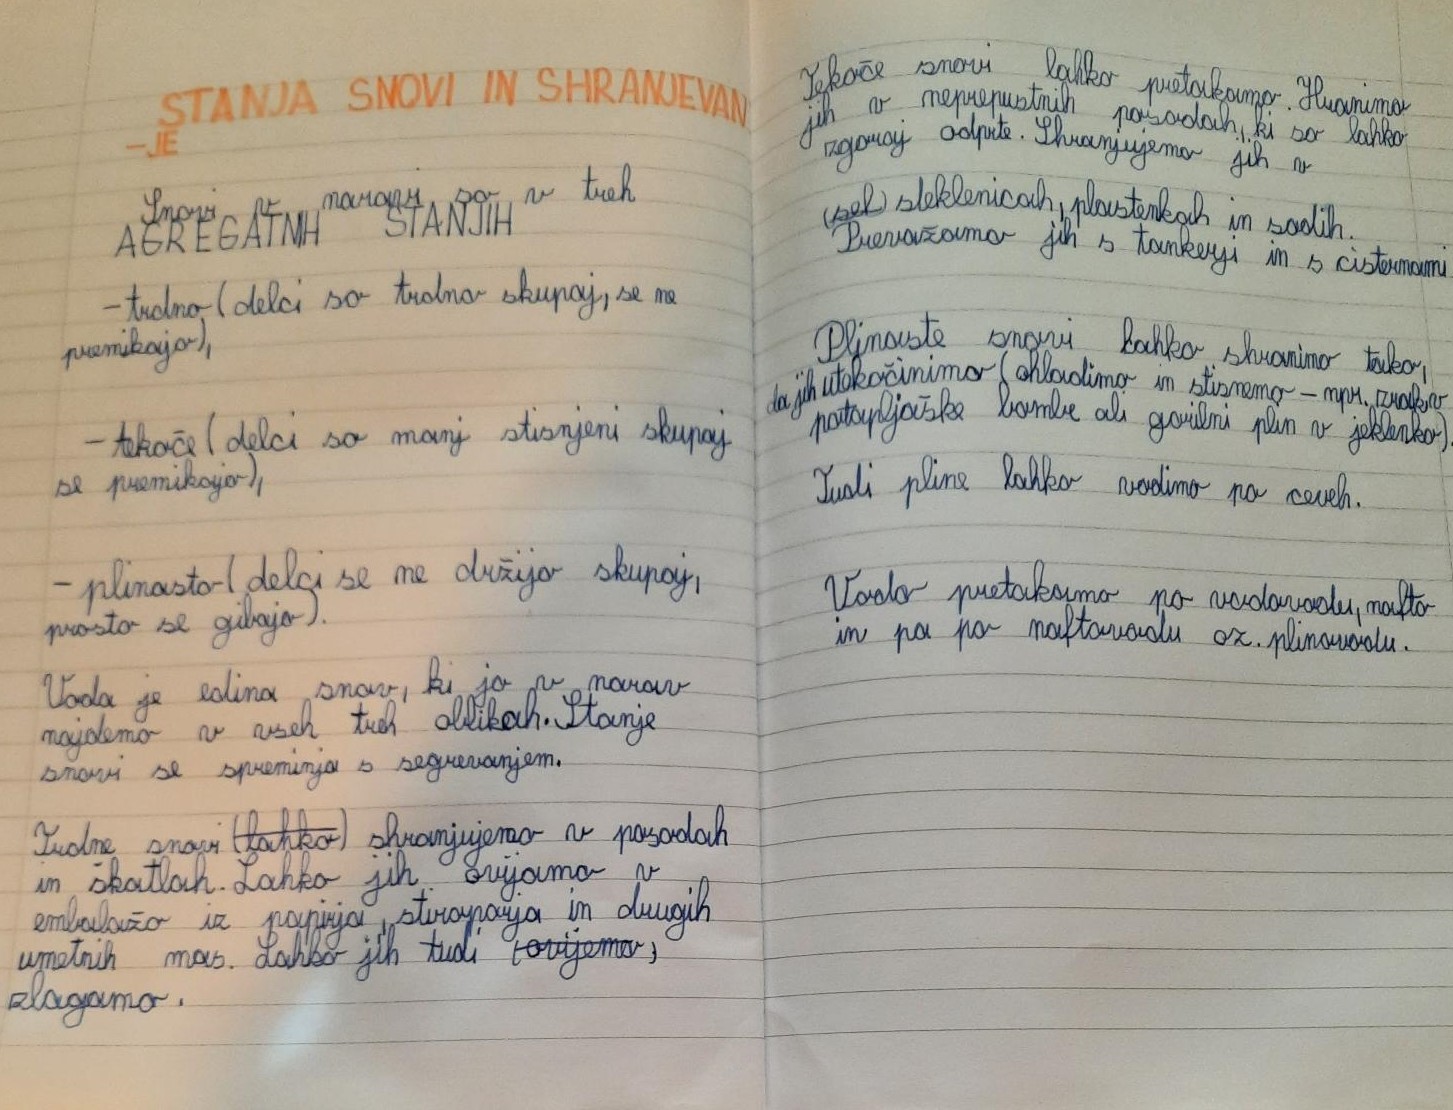 STANJA SNOVI IN SHRANJEVAN
-JE
Snovi v naravi so v treh
AGREGATNIH STANJIH
- trdno (delci so trdno skupaj, se ne
premikajo),
- tekoče (delci so manj stisnjeni skupaj
se premikajo),
- plinasto (delci se ne držijo skupaj,
prosto se gibajo).
Voda je edina snov, ki jo v narav
najdemo v vseh treh oblikah. Stanje
snovi se spreminja s segrevanjem.
Trdne snovi (lahko) shranjujemo v posodah
in škatlah. Lahko jih ovijamo v
embalažo iz papirja, stiroporja in drugih
umetnih mas. Lahko jih tudi (ovijemo)
zlagamo.
Tekoče snovi lahko pretakamo. Hranimo
jih v neprepustnih posodah, ki so lahko
zgoraj odprte. Shranjujemo jih v
(sek) steklenicah, plastenkah in sodih.
Prevažamo jih s tankerji in s cisternami
Plinaste snovi lahko shranimo tako,
da jih utekočinimo (ohladimo in stisnemo - npr. zrak v
potapljaške bombe ali gorilni plin v jeklenko).
Tudi pline lahko vodimo po ceveh.
Vodo pretakamo po vodovodu, nafto
in pa po naftovodu oz. plinovodu.